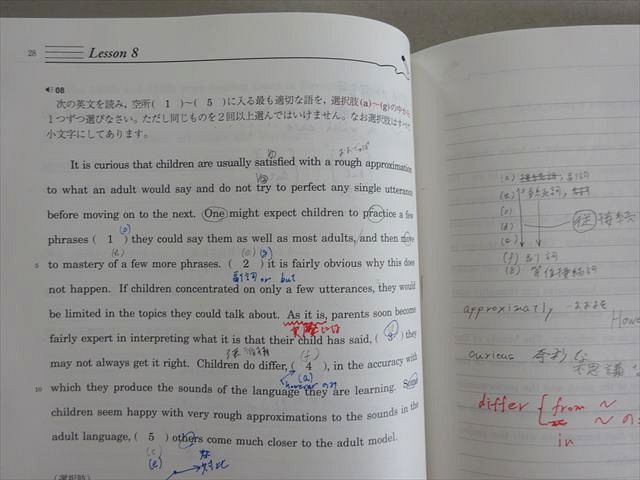 28
Lesson 8
08
次の英文を読み,空所( 1 )~( 5 )に入る最も適切な語を,選択肢(a)~(g)の中から
1つずつ選びなさい。ただし同じものを2回以上選んではいけません。なお選択肢はすべて
小文字にしてあります。
It is curious that children are usually satisfied with a rough approximation
to what an adult would say and do not try to perfect any single utterance
before moving on to the next. One might expect children to practice a few
phrases ( 1 ) they could say them as well as most adults, and then move
5 to mastery of a few more phrases. ( 2 ) it is fairly obvious why this does
not happen. If children concentrated on only a few utterances, they would
be limited in the topics they could talk about. As it is, parents soon become
fairly expert in interpreting what it is that their child has said, ( 3 ) they
may not always get it right. Children do differ, ( 4 ), in the accuracy with
10 which they produce the sounds of the language they are learning. Some
children seem happy with very rough approximations to the sounds in the
adult language, ( 5 ) others come much closer to the adult model.
(c)
(e)
対比
(選択肢)
(a)
(d)
(e)
(f) 副詞
(g) 等位接続詞
従 接続
approximately
curious 奇妙な
不思議な
differ from ~
in